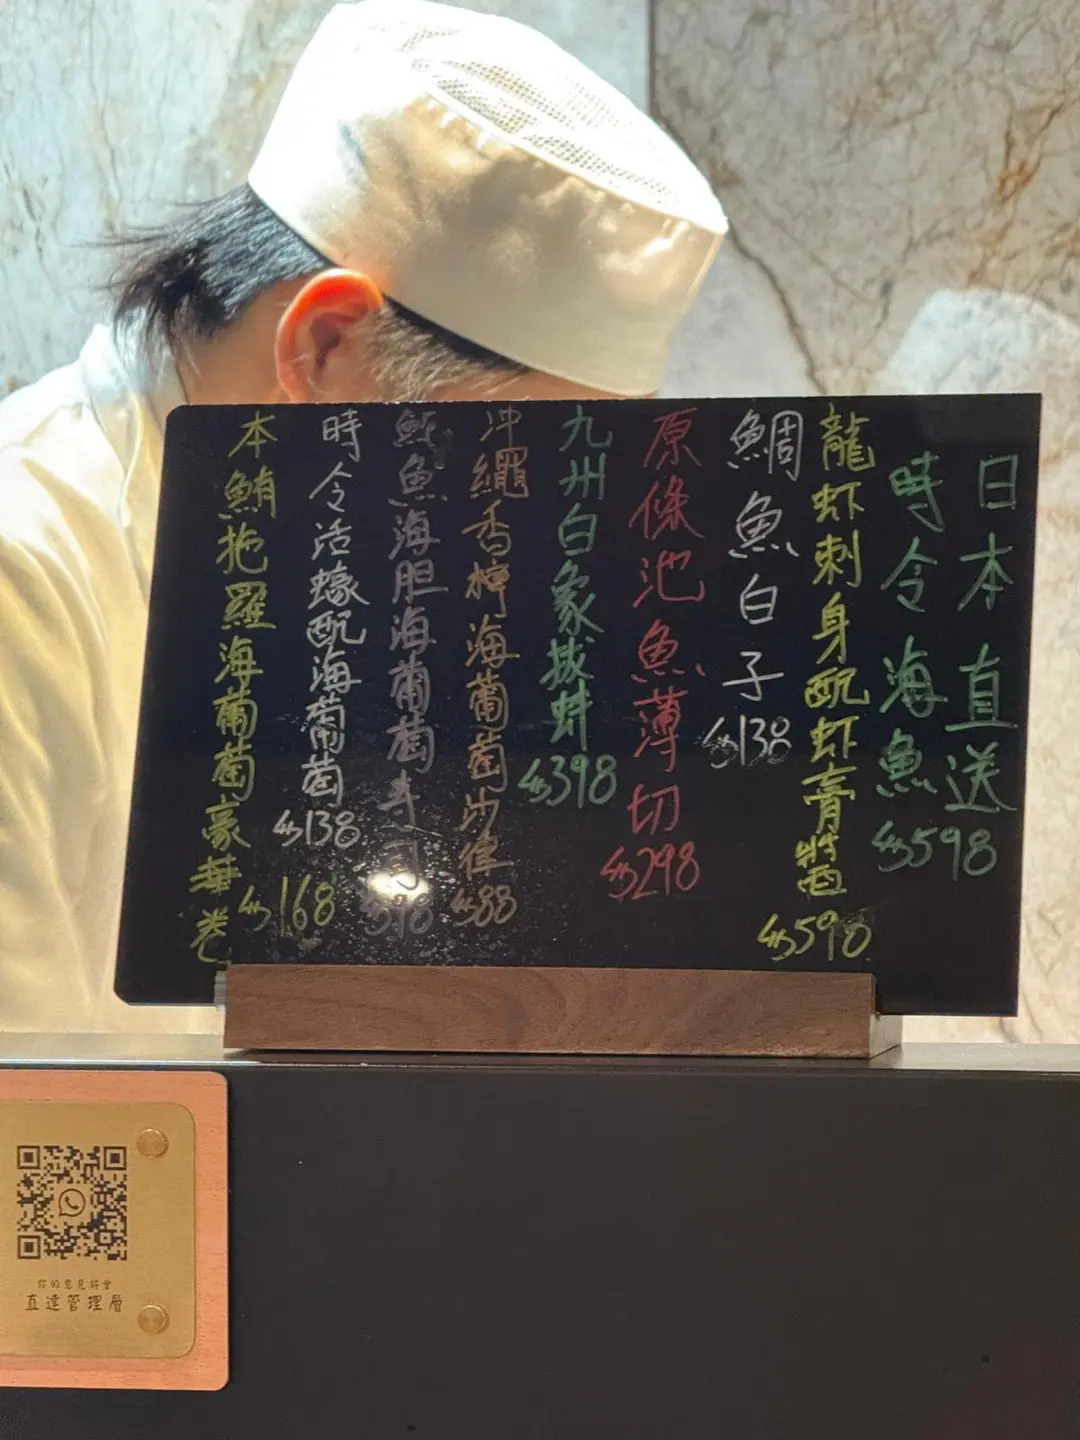 日本直送
時令海魚 $598
龍虾刺身配虾膏醬 $598
鯛魚白子 $138
原條池魚薄切 $298
九州白象拔蚌 $398
沖繩香檸海葡萄沙律 $88
魷魚海胆海葡萄寿司 $98
時令活蠔配海葡萄 $138
本鮪拖羅海葡萄豪華卷 $168
你的意見將會
直達管理層